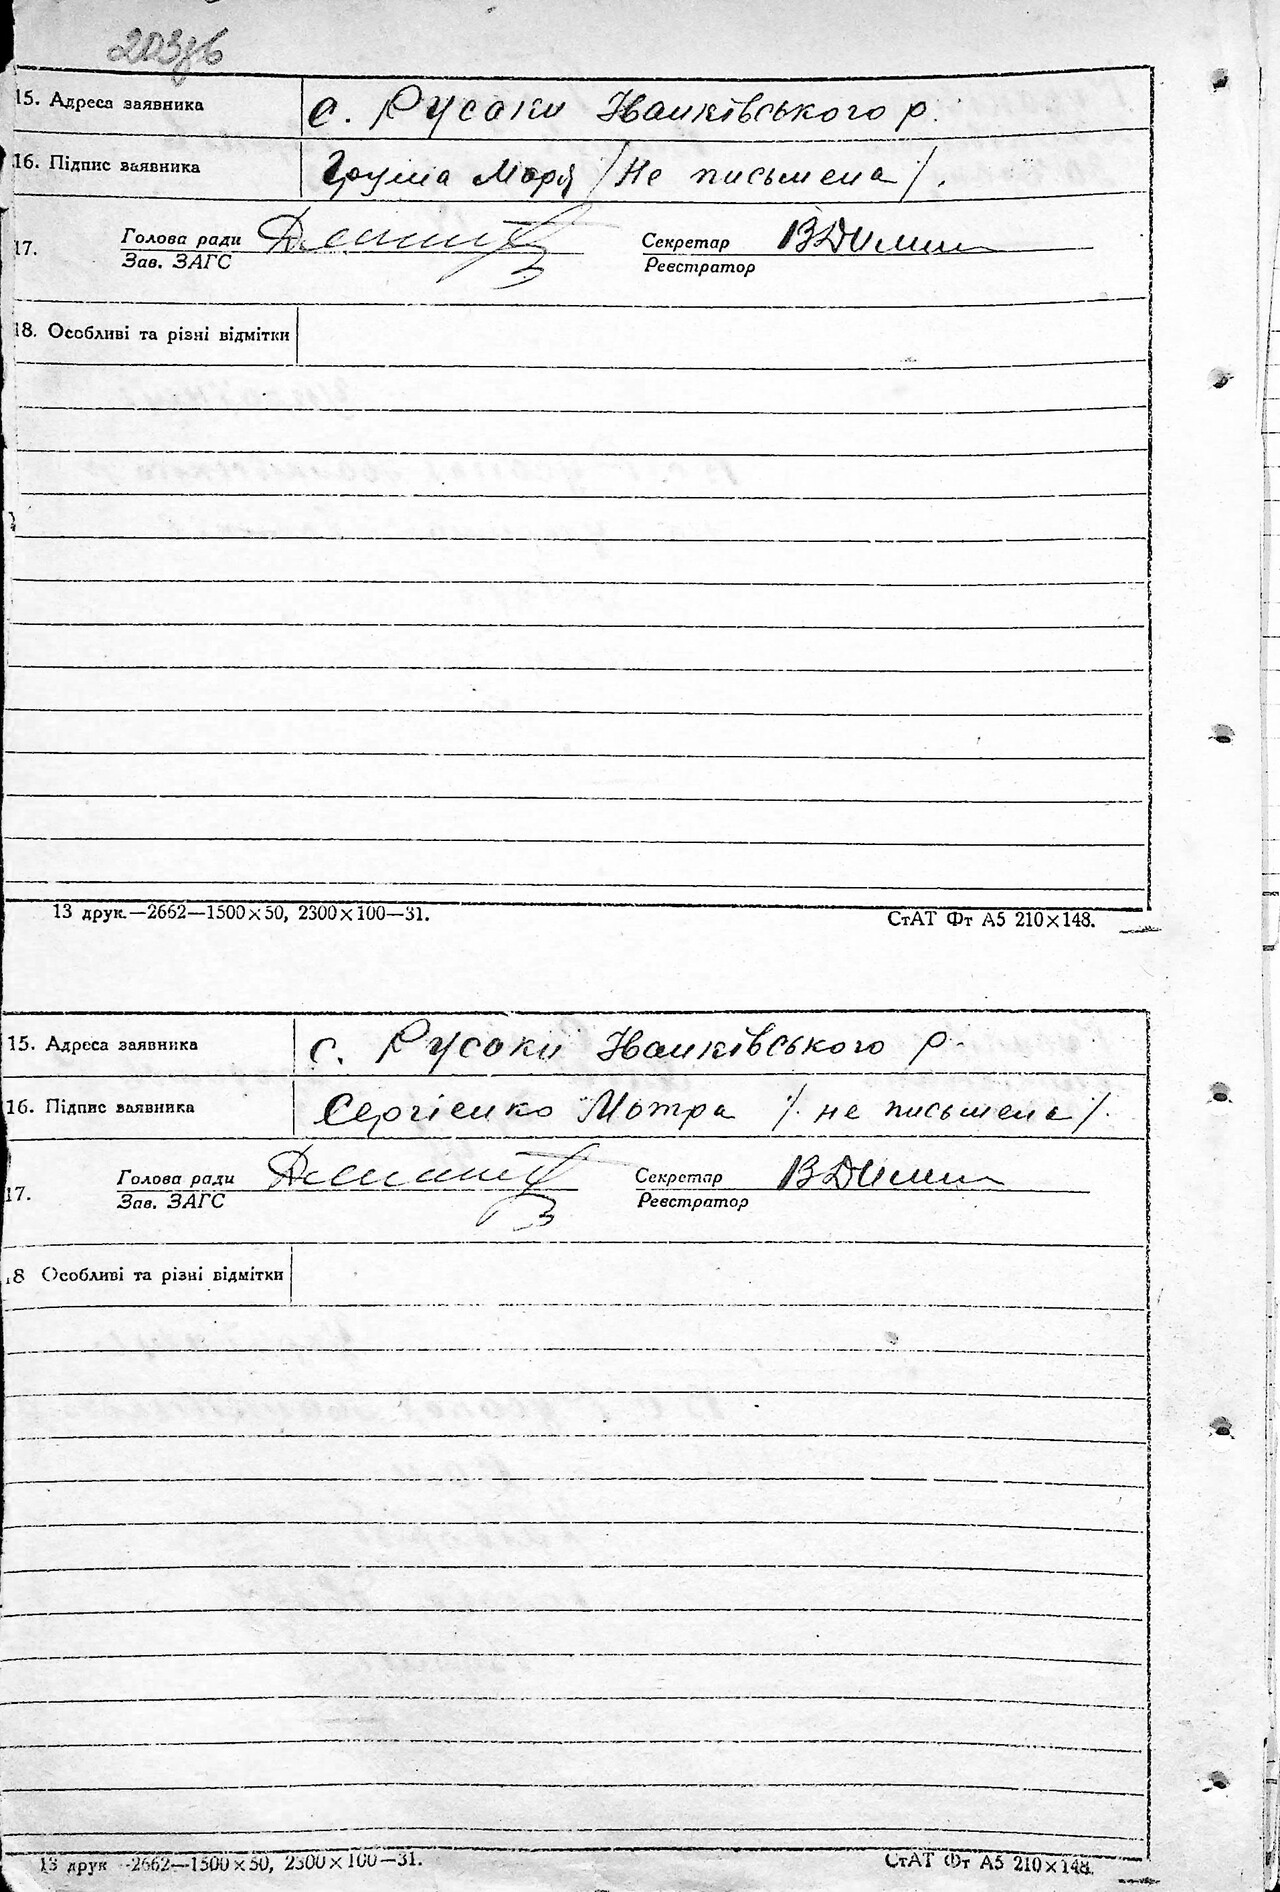 203зв
15. Адреса заявника с. Русаки Іванківського р.
16. Підпис заявника Груша Марія /не письмена/.
17. Голова ради Секретар
Зав. ЗАГС Реєстратор
18. Особливі та різні відмітки
13 друк.—2662—1500×50, 2300×100—31. СтАТ Фт А5 210×148.
15. Адреса заявника с. Русаки Іванківського р.
16. Підпис заявника Сергієнко Мотра /не письмена/.
17. Голова ради Секретар
Зав. ЗАГС Реєстратор
18 Особливі та різні відмітки
13 друк —2662—1500×50, 2300×100—31. СтАТ Фт А5 210×148.